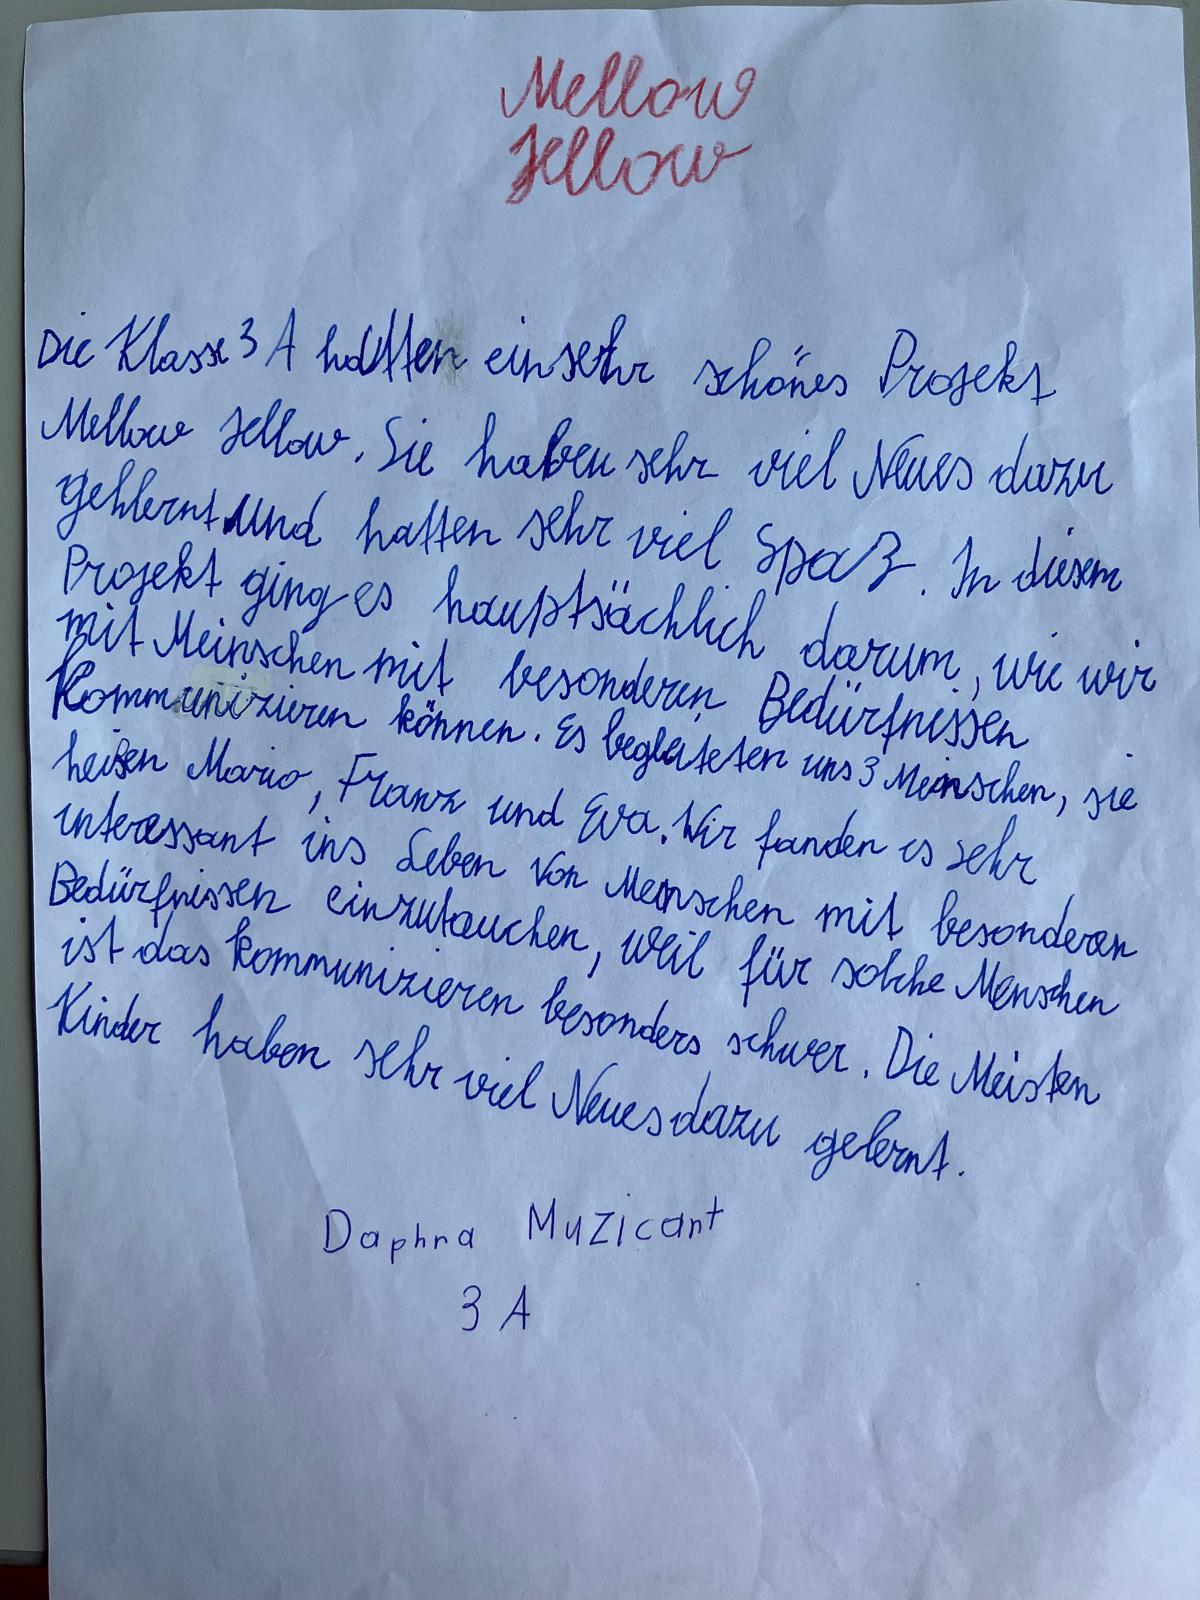 Mellow
Jellow
Die Klasse 3 A hatten ein sehr schönes Projekt
Mellow Jellow. Sie haben sehr viel Neues dazu
gehlernt und hatten sehr viel Spaß. In diesem
Projekt ging es hauptsächlich darum, wie wir
mit Meinschen mit besonderen Bedürfnissen
Kommunizieren können. Es begleiteten uns 3 Meinschen, sie
heißen Mario, Franz und Eva. Wir fanden es sehr
interessant ins Leben von Menschen mit besonderen
Bedürfnissen einzutauchen, weil für solche Menschen
ist das kommunizieren besonders schwer. Die Meisten
Kinder haben sehr viel Neues dazu gelernt.
Daphna Muzicant
3 A